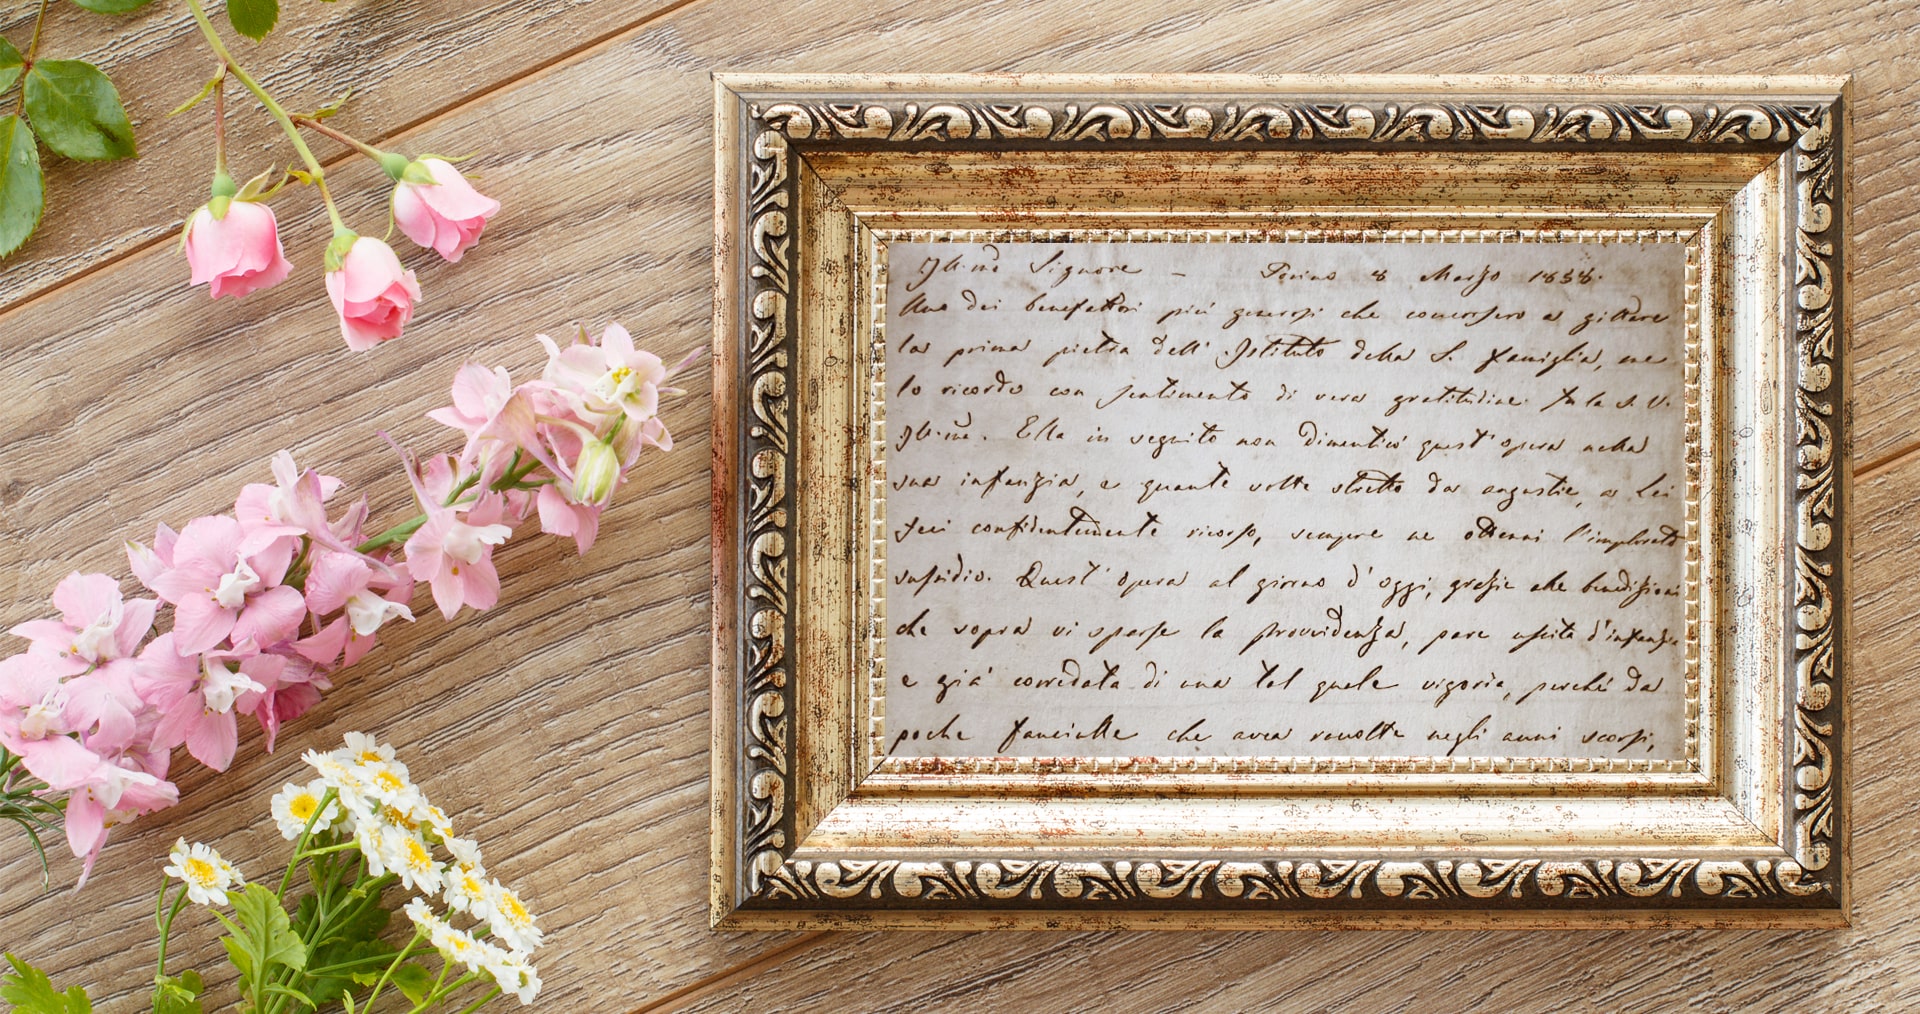 Ill.mo Signore - Torino 8 Marzo 1838.
Uno dei benefattori più generosi che concorsero a gittare
la prima pietra dell' Istituto della S. famiglia, me
lo ricordo con sentimento di vera gratitudine fu la S. V.
Ill.ma. Ella in seguito non dimenticò quest' opera nella
sua infanzia, e quante volte stretto da angustie, a Lei
feci confidentemente ricorso, sempre ne ottenni l'implorato
sussidio. Quest' opera al giorno d' oggi, grazie alle benedizioni
che sopra vi sparse la provvidenza, pare uscita d'infanzia
e già corredata di una tal quale vigoria, perché da
poche fanciulle che avea raccolte negli anni scorsi,